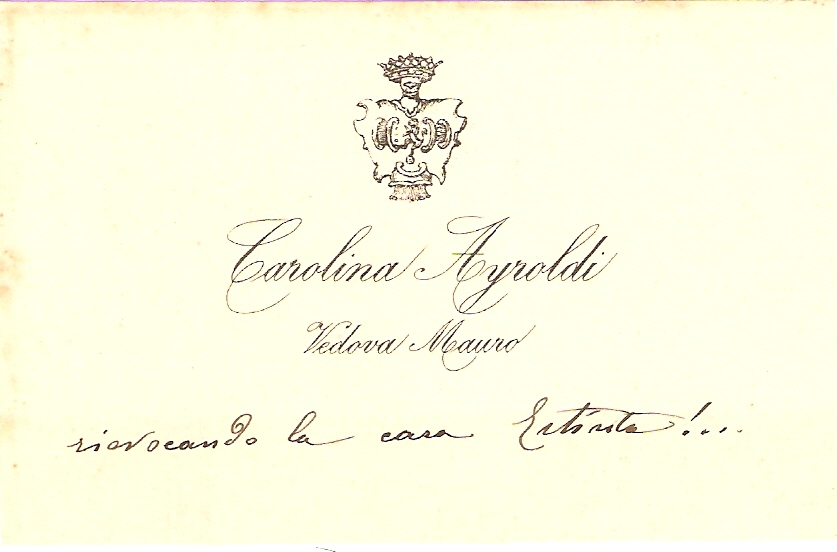 Carolina Ayroldi
Vedova Mauro
rievocando la cara Estinta!...